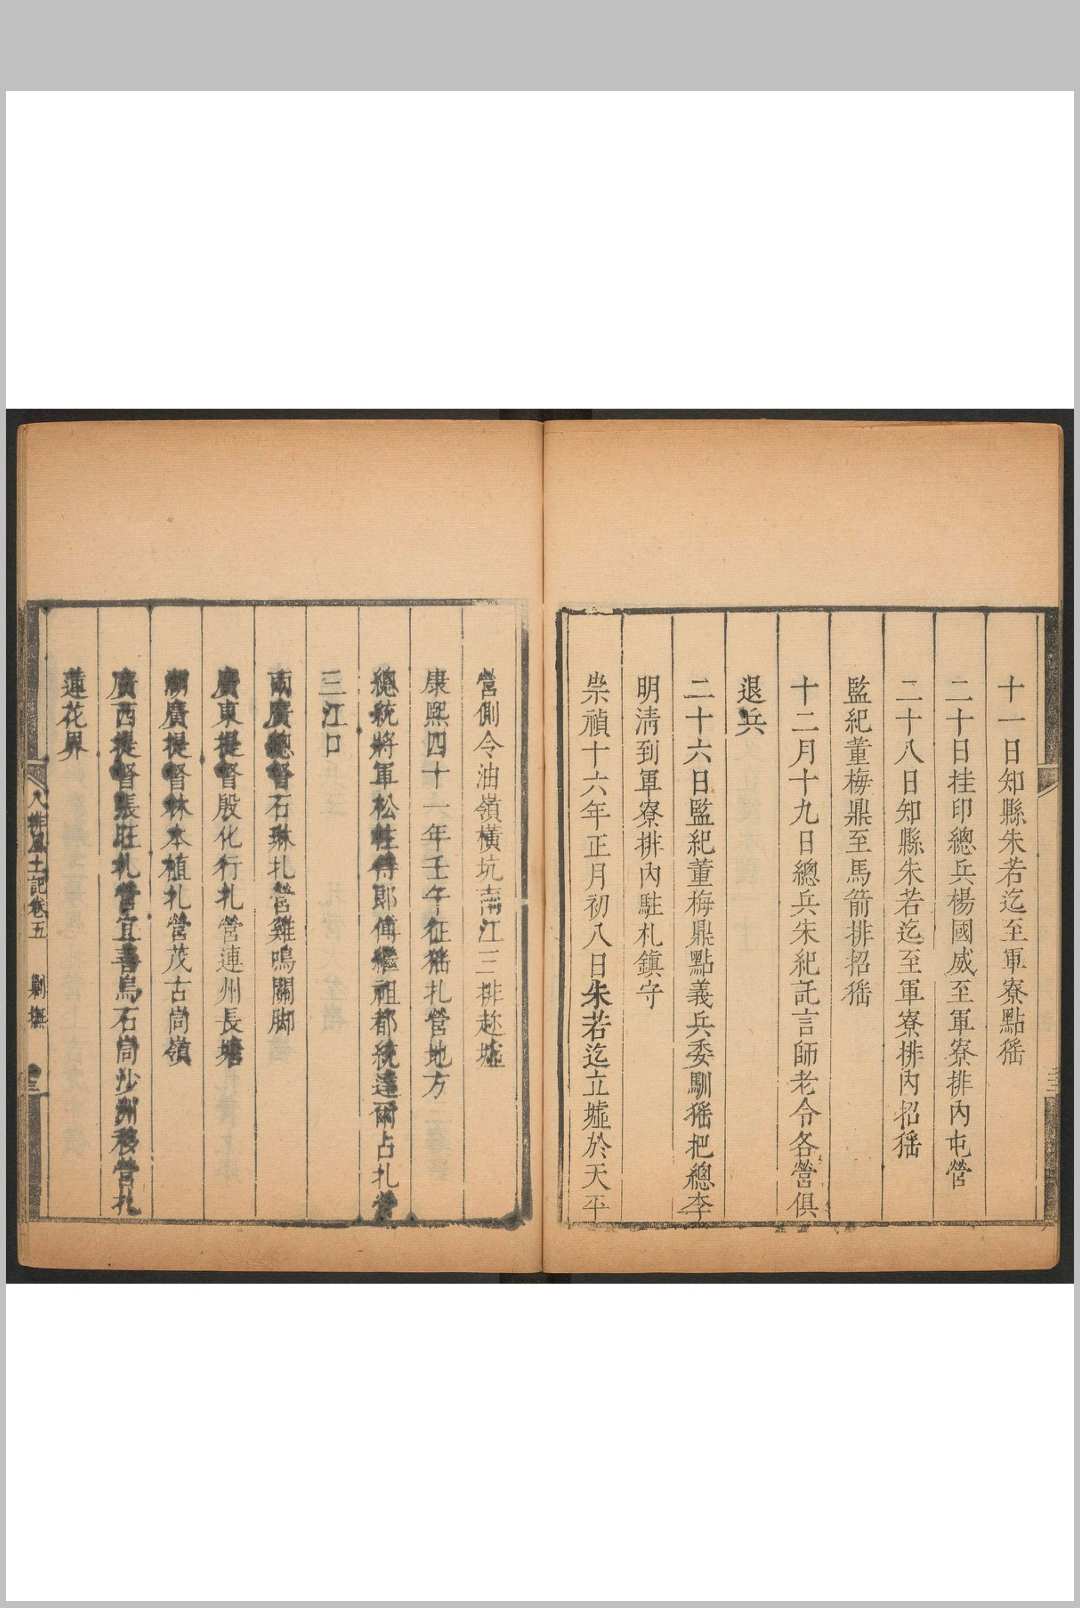 十一日知縣朱若迄至軍寮點猺
二十日挂印總兵楊國威至軍寮排內屯營
二十八日知縣朱若迄至軍寮排內招猺
監紀董梅鼎至馬箭排招猺
十二月十九日總兵朱紀託言師老令各營俱
退兵
二十六日監紀董梅鼎點義兵委馴猺把總李
明清到軍寮排內駐札鎮守
崇禎十六年正月初八日朱若迄立墟於天平
營側令油嶺橫坑南江三排趂墟
康熙四十一年壬午征猺札營地方
總統將軍松桂侍郎傅繼祖都統達爾占札營
三江口
兩廣總督石琳札營雞鳴關脚
廣東提督殷化行札營連州長塘
湖廣提督林本植札營茂古峝嶺
廣西提督張旺札營宜善鳥石峝沙洲移營札
蓮花界
八排風土記卷五 剿撫